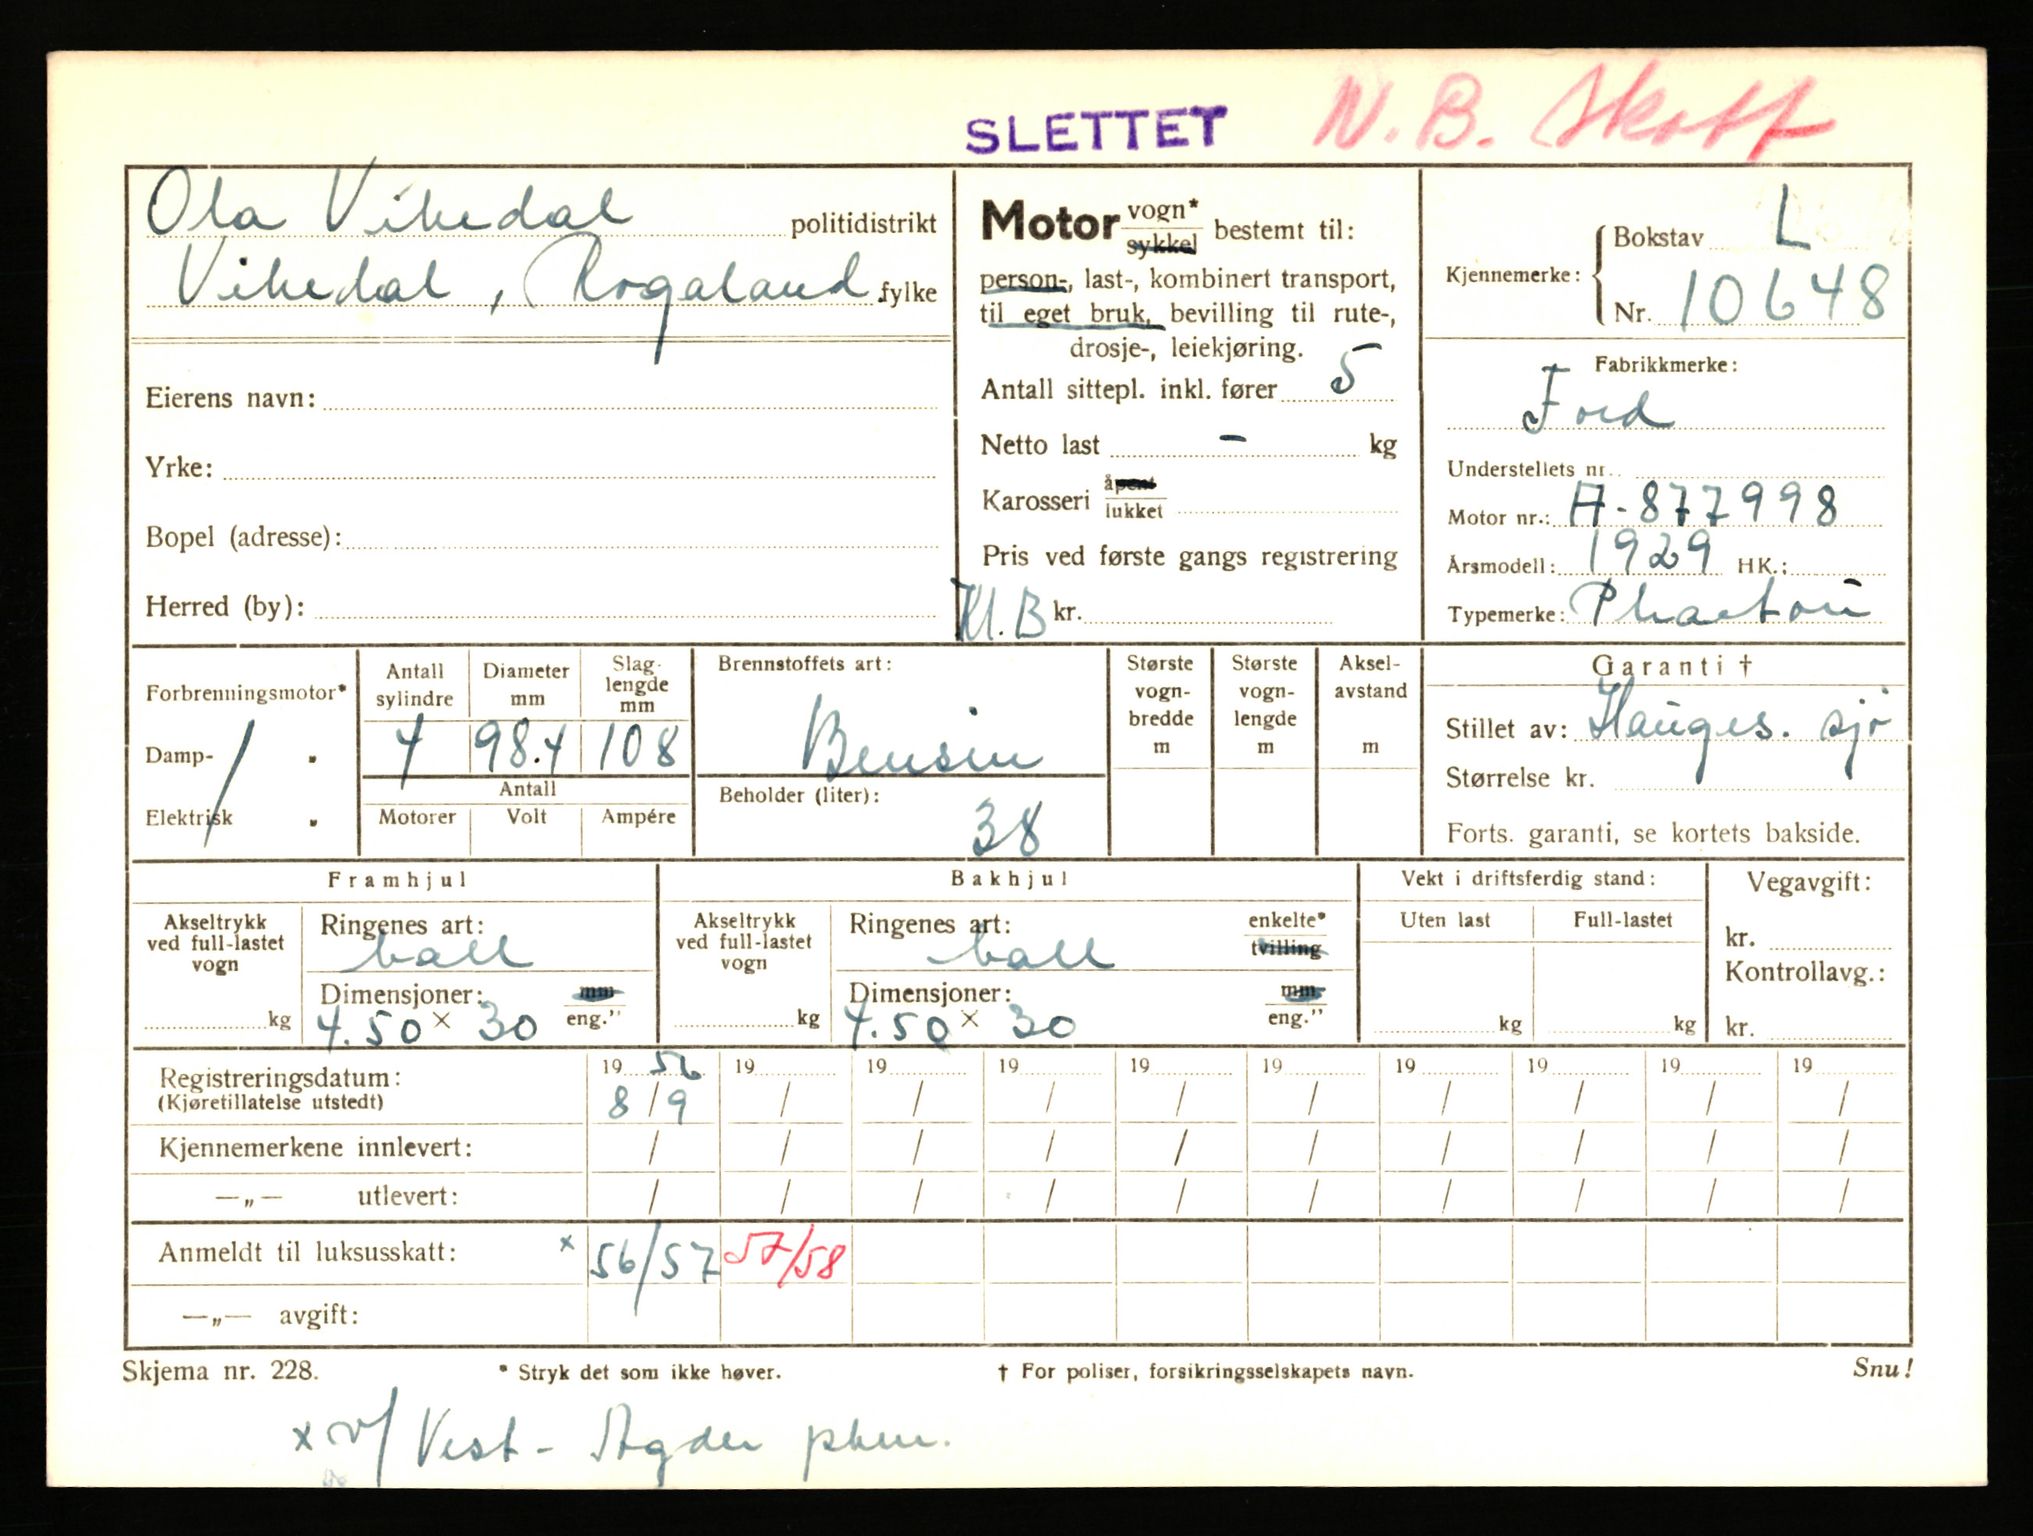 SLETTET N.B. Skatt
Ola Vikedal politidistrikt
Vikedal, Rogaland fylke
Eierens navn:
Yrke:
Bopel (adresse):
Herred (by):
Motor vogn* sykkel bestemt til:
person-, last-, kombinert transport,
til eget bruk, bevilling til rute-,
drosje-, leiekjøring.
Antall sittepl. inkl. fører 5
Netto last - kg
Karosseri åpent lukket
Pris ved første gangs registrering
Kl. B kr.
Kjennemerke: Bokstav L
Nr. 10648
Fabrikkmerke:
Ford
Understellets nr.
Motor nr.: A-877998
Årsmodell: 1929 HK.:
Typemerke: Phaeton
Forbrenningsmotor*
Damp- "
Elektrisk "
Antall sylindre
Diameter mm
Slaglengde mm
4 98.4 108
Antall
Motorer Volt Ampére
Brennstoffets art:
Bensin
Beholder (liter):
38
Største vogn-bredde m
Største vogn-lengde m
Aksel-avstand m
Garanti †
Stillet av: Hauges. sjø
Størrelse kr.
Forts. garanti, se kortets bakside.
Framhjul
Akseltrykk ved full-lastet vogn
kg
Ringenes art:
ball
Dimensjoner: mm eng."
4.50 x 30
Bakhjul
Akseltrykk ved full-lastet vogn
kg
Ringenes art: enkelte* tvilling
ball
Dimensjoner: mm eng."
4.50 x 30
Vekt i driftsferdig stand:
Uten last Full-lastet
kg kg
Vegavgift:
kr.
Kontrollavg.:
kr.
Registreringsdatum: 19 56 19 19 19 19 19 19 19 19 19
(Kjøretillatelse utstedt) 8/9 / / / / / / / / /
Kjennemerkene innlevert: / / / / / / / / / /
—„— utlevert: / / / / / / / / / /
Anmeldt til luksusskatt: x 56/57 57/58
—„— avgift:
Skjema nr. 228. * Stryk det som ikke høver. † For poliser, forsikringsselskapets navn. Snu!
x v/ Vest-Agder pkm.